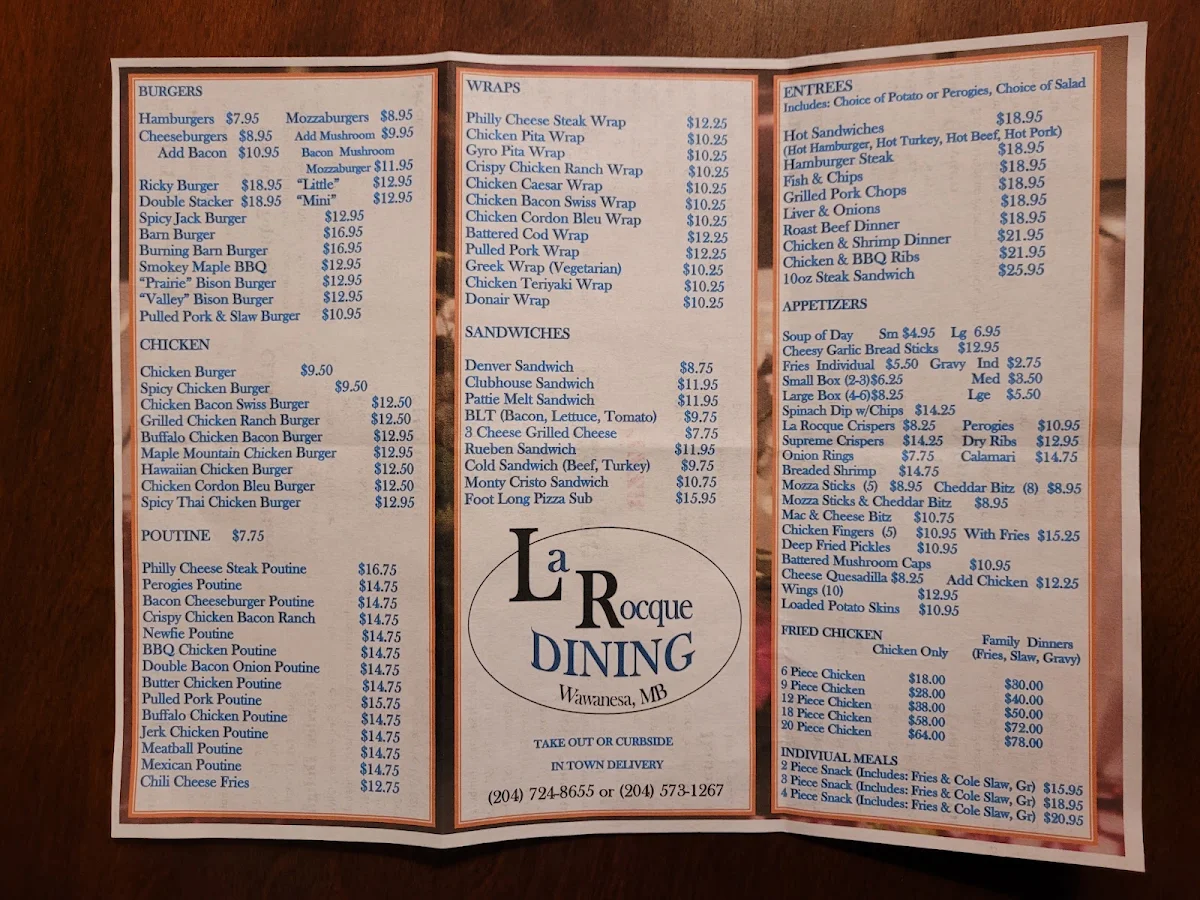 BURGERS
Hamburgers $7.95 Mozzaburgers $8.95
Cheeseburgers $8.95 Add Mushroom $9.95
Add Bacon $10.95 Bacon Mushroom
Mozzaburger $11.95
Ricky Burger $18.95 “Little” $12.95
Double Stacker $18.95 “Mini” $12.95
Spicy Jack Burger $12.95
Barn Burger $16.95
Burning Barn Burger $16.95
Smokey Maple BBQ $12.95
“Prairie” Bison Burger $12.95
“Valley” Bison Burger $12.95
Pulled Pork & Slaw Burger $10.95
CHICKEN
Chicken Burger $9.50
Spicy Chicken Burger $9.50
Chicken Bacon Swiss Burger $12.50
Grilled Chicken Ranch Burger $12.50
Buffalo Chicken Bacon Burger $12.95
Maple Mountain Chicken Burger $12.95
Hawaiian Chicken Burger $12.50
Chicken Cordon Bleu Burger $12.50
Spicy Thai Chicken Burger $12.95
POUTINE $7.75
Philly Cheese Steak Poutine $16.75
Perogies Poutine $14.75
Bacon Cheeseburger Poutine $14.75
Crispy Chicken Bacon Ranch $14.75
Newfie Poutine $14.75
BBQ Chicken Poutine $14.75
Double Bacon Onion Poutine $14.75
Butter Chicken Poutine $14.75
Pulled Pork Poutine $15.75
Buffalo Chicken Poutine $14.75
Jerk Chicken Poutine $14.75
Meatball Poutine $14.75
Mexican Poutine $14.75
Chili Cheese Fries $12.75
WRAPS
Philly Cheese Steak Wrap $12.25
Chicken Pita Wrap $10.25
Gyro Pita Wrap $10.25
Crispy Chicken Ranch Wrap $10.25
Chicken Caesar Wrap $10.25
Chicken Bacon Swiss Wrap $10.25
Chicken Cordon Bleu Wrap $10.25
Battered Cod Wrap $12.25
Pulled Pork Wrap $12.25
Greek Wrap (Vegetarian) $10.25
Chicken Teriyaki Wrap $10.25
Donair Wrap $10.25
SANDWICHES
Denver Sandwich $8.75
Clubhouse Sandwich $11.95
Pattie Melt Sandwich $11.95
BLT (Bacon, Lettuce, Tomato) $9.75
3 Cheese Grilled Cheese $7.75
Rueben Sandwich $11.95
Cold Sandwich (Beef, Turkey) $9.75
Monty Cristo Sandwich $10.75
Foot Long Pizza Sub $15.95
La
Rocque
DINING
Wawanesa, MB
TAKE OUT OR CURBSIDE
IN TOWN DELIVERY
(204) 724-8655 or (204) 573-1267
ENTREES
Includes: Choice of Potato or Perogies, Choice of Salad
Hot Sandwiches $18.95
(Hot Hamburger, Hot Turkey, Hot Beef, Hot Pork)
Hamburger Steak $18.95
Fish & Chips $18.95
Grilled Pork Chops $18.95
Liver & Onions $18.95
Roast Beef Dinner $18.95
Chicken & Shrimp Dinner $21.95
Chicken & BBQ Ribs $21.95
10oz Steak Sandwich $25.95
APPETIZERS
Soup of Day Sm $4.95 Lg 6.95
Cheesy Garlic Bread Sticks $12.95
Fries Individual $5.50 Gravy Ind $2.75
Small Box (2-3)$6.25 Med $3.50
Large Box (4-6)$8.25 Lge $5.50
Spinach Dip w/Chips $14.25
La Rocque Crispers $8.25 Perogies $10.95
Supreme Crispers $14.25 Dry Ribs $12.95
Onion Rings $7.75 Calamari $14.75
Breaded Shrimp $14.75
Mozza Sticks (5) $8.95 Cheddar Bitz (8) $8.95
Mozza Sticks & Cheddar Bitz $8.95
Mac & Cheese Bitz $10.75
Chicken Fingers (5) $10.95 With Fries $15.25
Deep Fried Pickles $10.95
Battered Mushroom Caps $10.95
Cheese Quesadilla $8.25 Add Chicken $12.25
Wings (10) $12.95
Loaded Potato Skins $10.95
FRIED CHICKEN Family Dinners
Chicken Only (Fries, Slaw, Gravy)
6 Piece Chicken $18.00 $30.00
9 Piece Chicken $28.00 $40.00
12 Piece Chicken $38.00 $50.00
18 Piece Chicken $58.00 $72.00
20 Piece Chicken $64.00 $78.00
INDIVIUAL MEALS
2 Piece Snack (Includes: Fries & Cole Slaw, Gr) $15.95
3 Piece Snack (Includes: Fries & Cole Slaw, Gr) $18.95
4 Piece Snack (Includes: Fries & Cole Slaw, Gr) $20.95